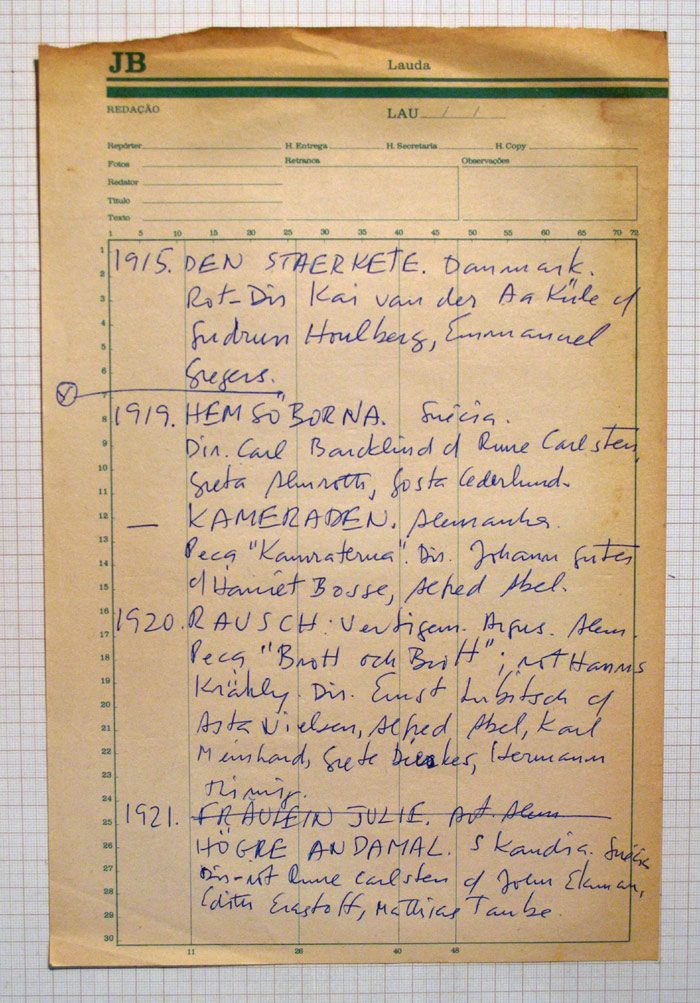 JB Lauda
REDAÇÃO LAU / /
Repórter H. Entrega H. Secretaria H. Copy
Fotos Retranca Observações
Redator
Título
Texto
1 5 11 15 20 25 30 35 40 45 50 55 60 65 70 72
1 1915. DEN STAERKETE. Danmark.
2
3 Rot-Dir Kai van der Aa Küle c/
4 Gudrun Houlberg, Emmanuel
5
6 Gregers.
7
8 1919. HEMSÖBORNA. Suécia.
9 Dir. Carl Barcklind c/ Rune Carlsten,
10 Greta Almroth, Gosta Cederlund.
11
12 — KAMERADEN. Alemanha.
13 Peça "Kamraterna". Dir. Johann
14
15 c/ Harriet Bosse, Alfred Abel.
16 1920. RAUSCH: Vertigem. Argus. Alem.
17 Peça "Brott och Brott"; rot Hanns
18
19 Krähly. Dir. Ernst Lubitsch c/
20 Asta Nielsen, Alfred Abel, Karl
21
22 Meinhard, Grete Diercks, Hermann
23
24 Thimig.
25 1921. FRÄULEIN JULIE. Alem
26 HÖGRE ANDAMAL. Skandia. Suécia
27 Dir-rot Rune Carlsten c/ John Ekman,
28 Edith Erastoff, Mathias Taube.
29
30
11 26 40 48